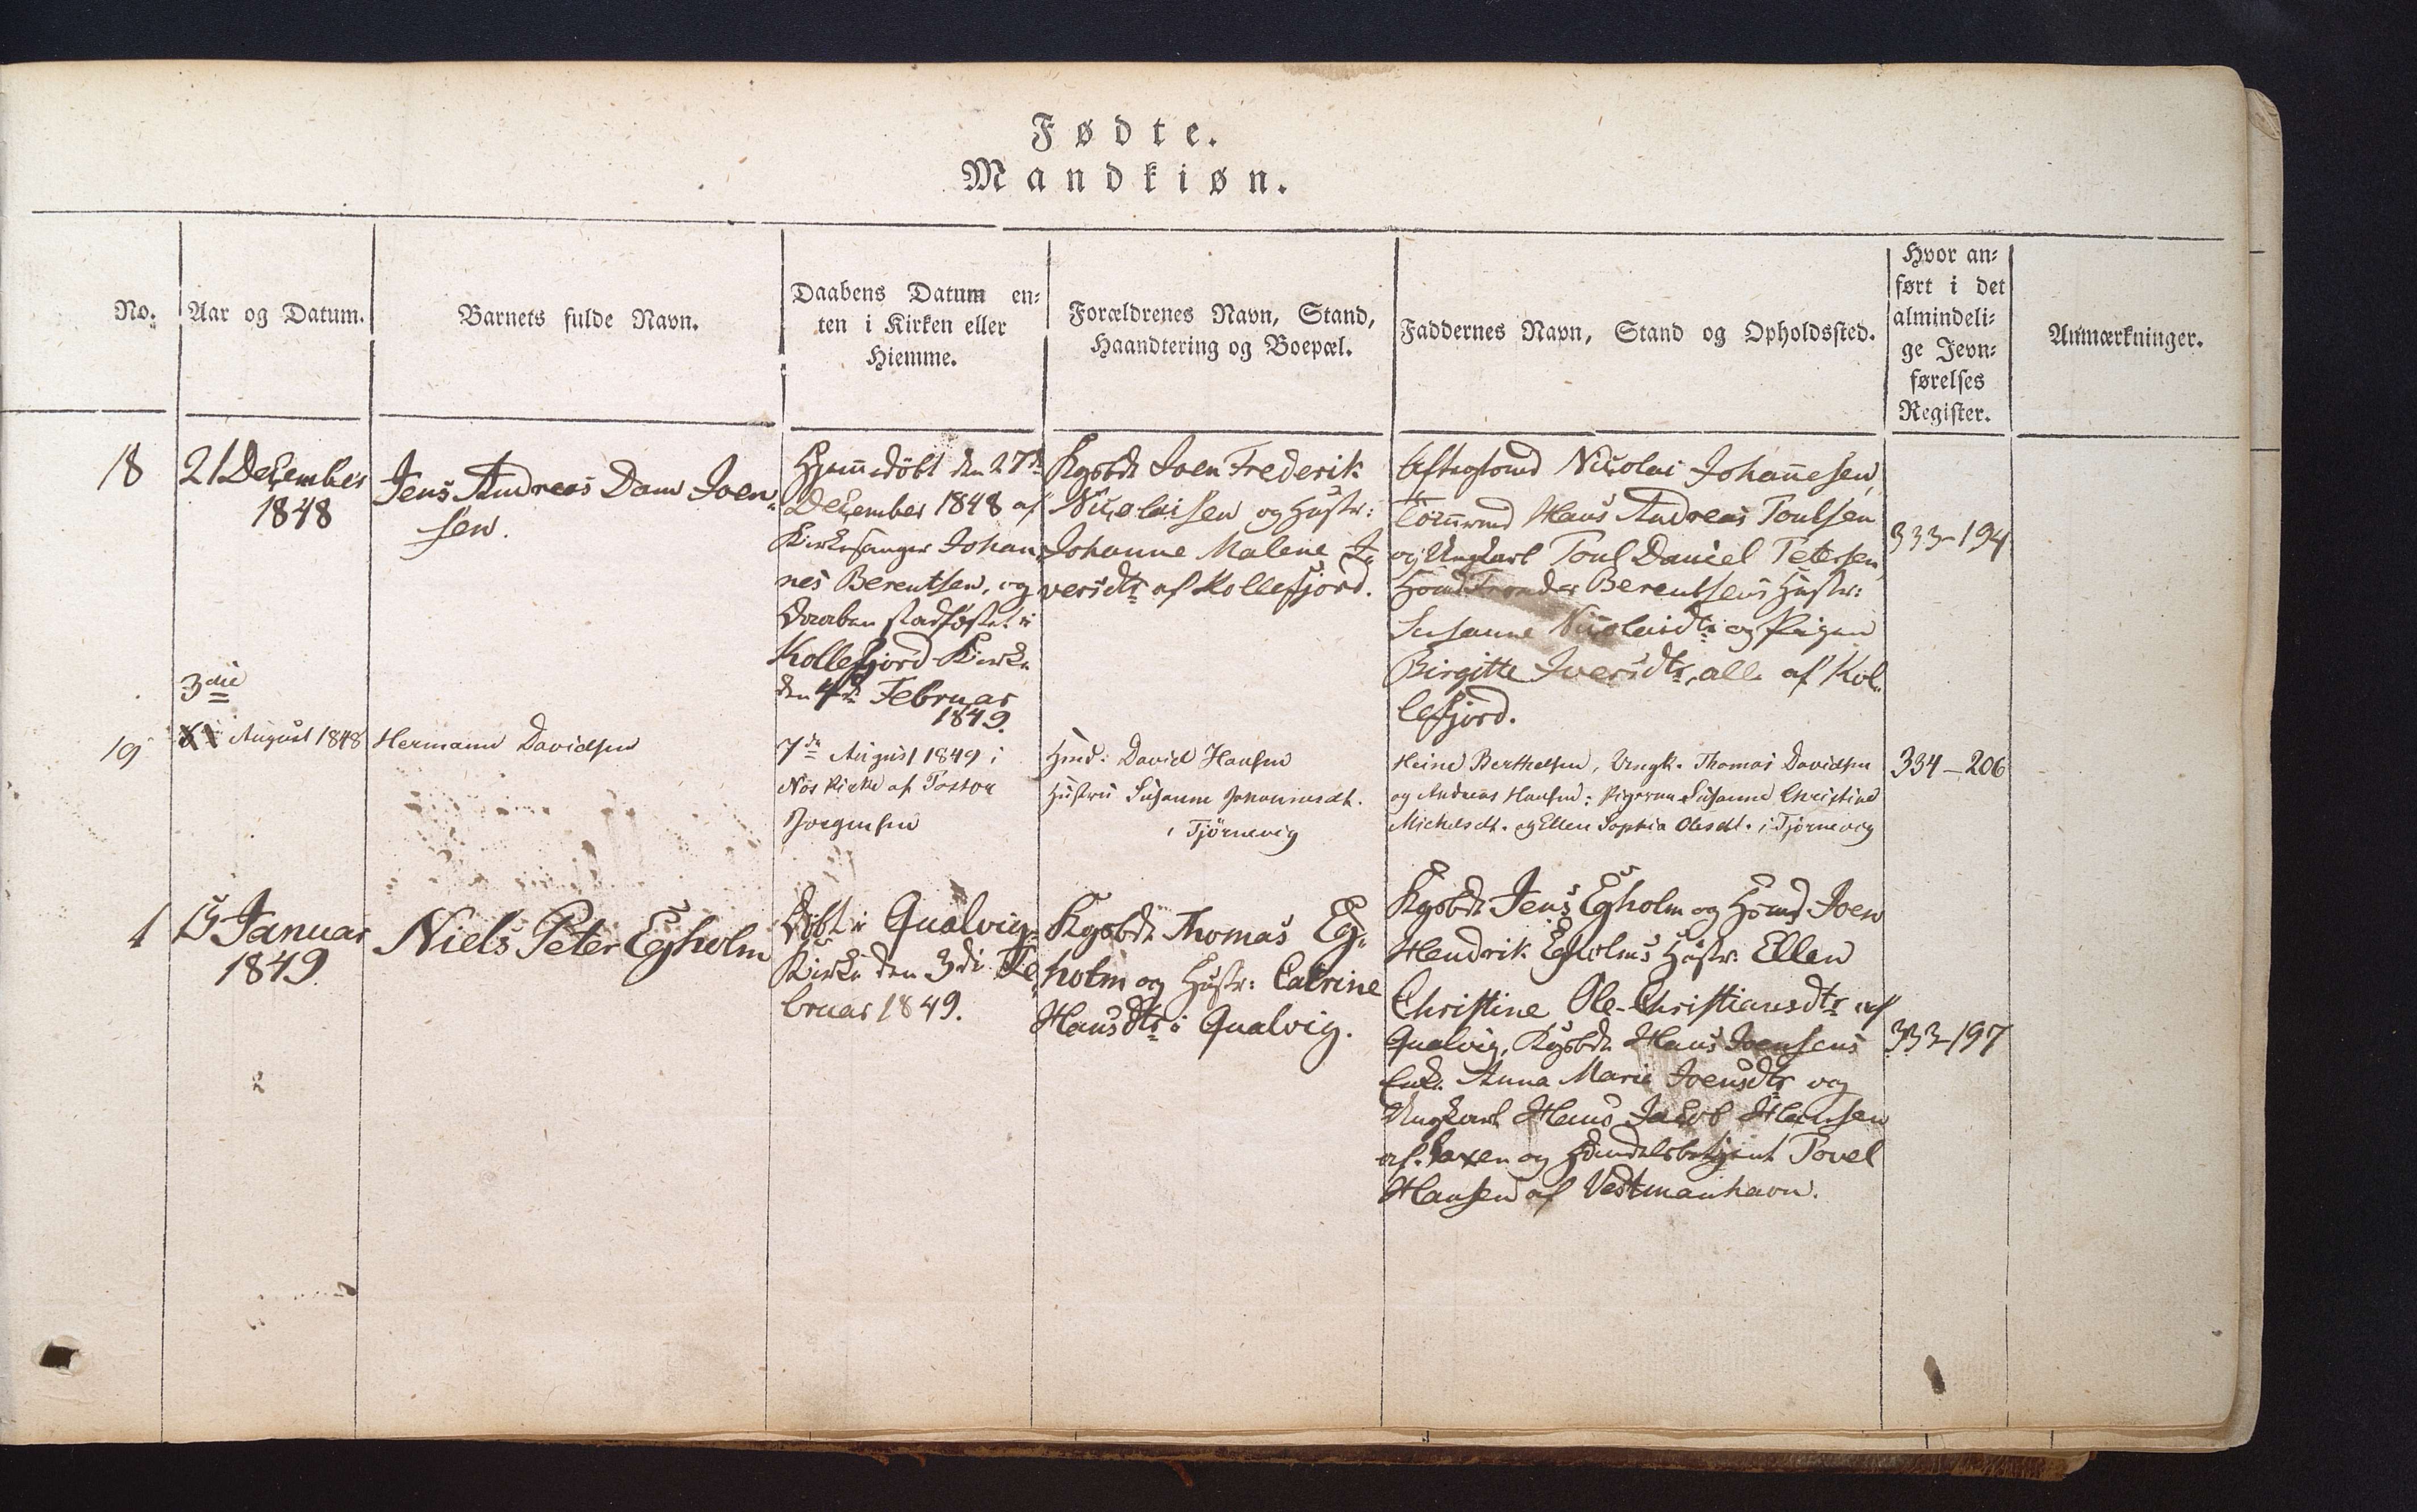 Fødte.
Mandkiøn.
No.
Aar og Datum.
Barnets fulde Navn.
Daabens Datum en-
ten i Kirken eller
Hiemme.
Forældrenes Navn, Stand,
Haandtering og Boepæl.
Faddernes Navn, Stand og Opholdssted.
Hvor an-
ført i det
almindeli-
ge Jevn-
førelses
Register.
Anmærkninger.
18
21 December
1848
Jens Andreas Dam Joen-
sen.
Hjemmedöbt den 27de
December 1848 af
Kirkesanger Johan-
nes Berentsen, og
Daaben stadfæstet i
Kollefjord Kirke
den 4de Februar
1849.
Kgsbdr Joen Frederik
Nicolaisen og Hustr:
Johanne Malene I-
versdtr af Kollefjord.
Nicolai Johannesen,
Hans Andreas Poulsen
og Ungkarl Poul Daniel Petersen,
Berentsens Hustr:
Susanne Nicolaidtr og Pigen
Birgitte Iversdtr, alle af Kol-
lefjord.
333-194
19
3die
August 1848
Hermann Davidsen
7de August 1849 i
Nös Kirke af Pastor
Jörgensen
Hmd: David Hansen
Hustru Susanne Johannesdt.
i Tjörnevig
Heine Berthelsen, Ungk. Thomas Davidsen
og Andreas Hansen: Pigerne Susanne Christine
Michelsdt. og Ellen Sophia Olesdt. i Tjörnevig
334-206
1
15 Januar
1849
Niels Peter Egholm
Döbt i Qualvig
Kirke den 3die Fe-
bruar 1849.
Kgsbdr Thomas Eg-
holm og Hustr: Catrine
Hansdtr i Qualvig.
Kgsbdr Jens Egholm og Hmd Joen
Hendrik Egholms Hustr. Ellen
Christine Ole-Christiansdtr af
Qualvig, Kgsbdr Hans Joensens
Enke Anna Marie Joensdtr og
Ungkarl Hans Jacob Hansen
af Saxen og Handelsbetjent Povel
Hansen af Vestmanhavn.
333-197